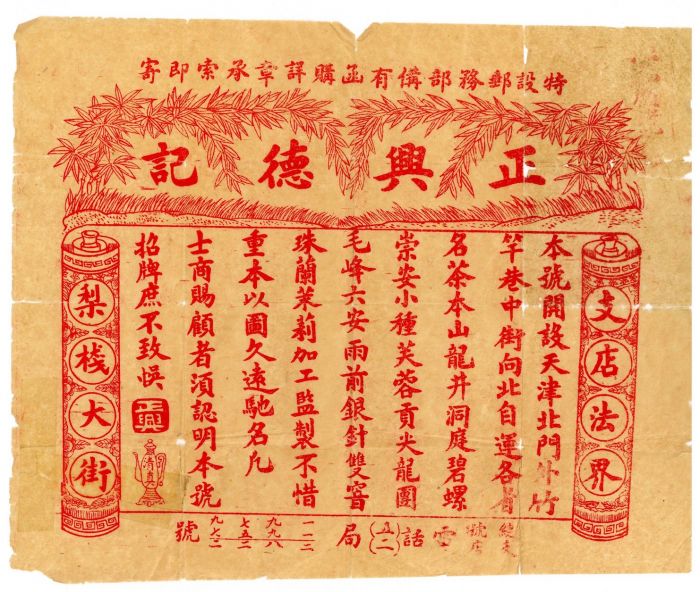 特設郵務部備有函購詳章承索即寄
正興德記
支店法界
本號開設天津北門外竹
竿巷中街向北自運各省
名茶本山龍井洞庭碧螺
崇安小種芙蓉貢尖龍團
毛峰六安雨前銀針雙窨
珠蘭茉莉加工監製不惜
重本以圖久遠馳名凡
士商賜顧者須認明本號
招牌庶不致悞
正興
清真
梨棧大街
電話(五二)局
號